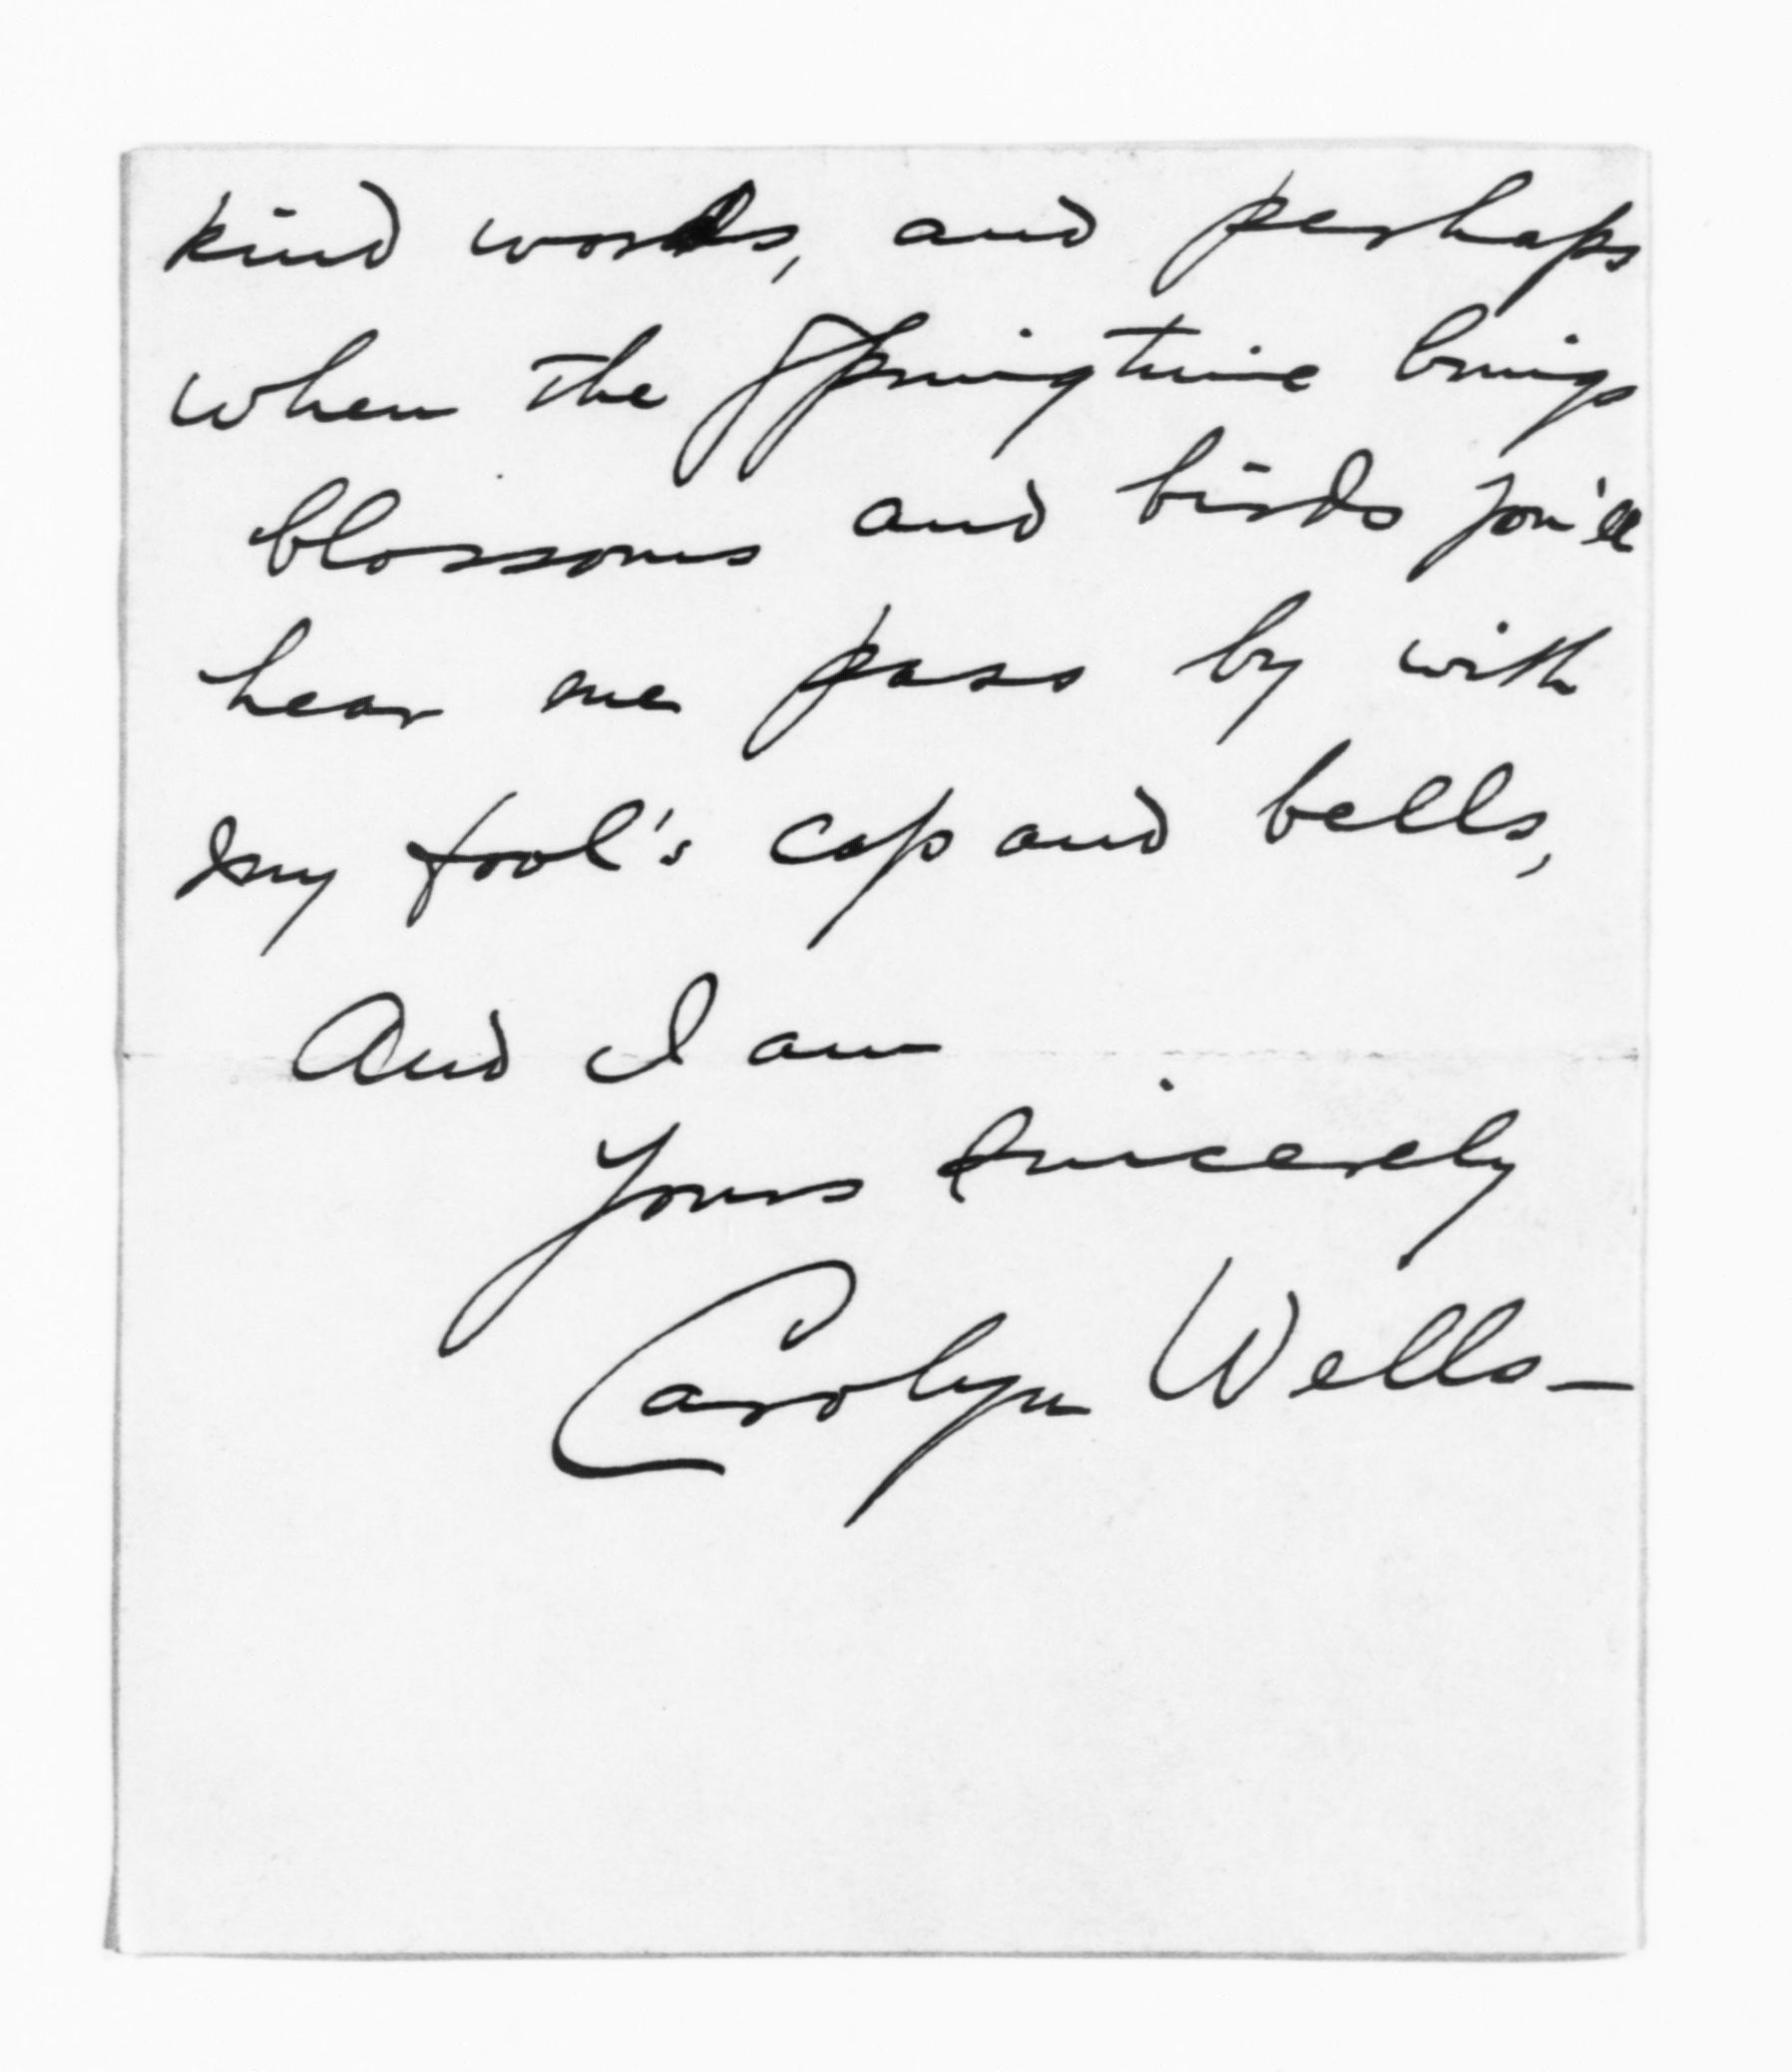 kind words, and perhaps
when the Springtime brings
blossoms and birds you'll
hear me pass by with
my fool's cap and bells,
And I am
Yours sincerely
Carolyn Wells—